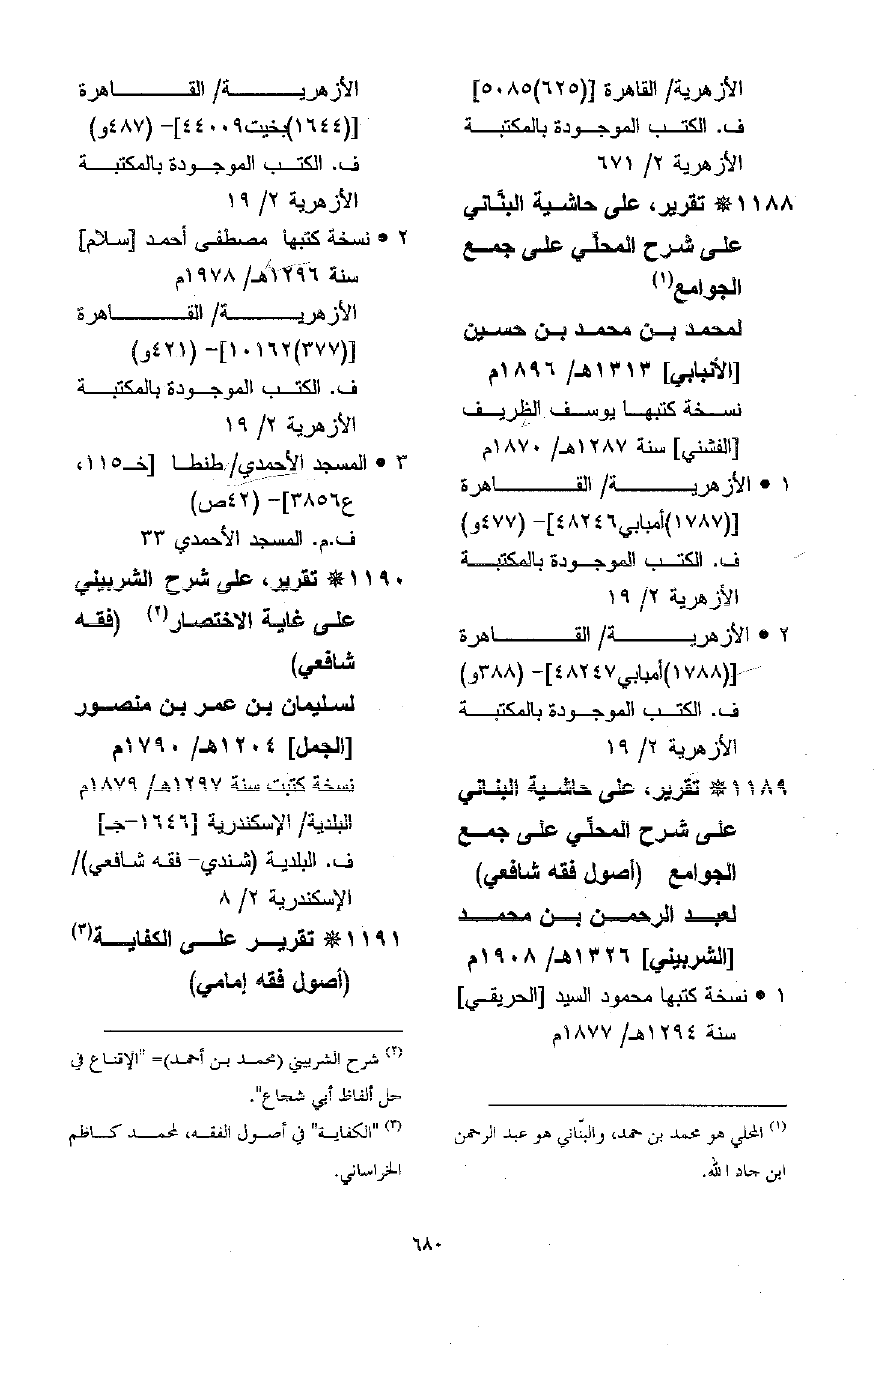 الأزهرية/ القاهرة [(٦٢٥)٥٠٨٥]
ف. الكتب الموجودة بالمكتبة
الأزهرية ٢/ ٦٧١
١١٨٨* تقرير، على حاشية البنَّاني
على شرح المحلّي على جمع
الجوامع(١)
لمحمد بن محمد بن حسين
[الأنبابي] ١٣١٣هـ/ ١٨٩٦م
نسخة كتبها يوسف الظريف
[الفشني] سنة ١٢٨٧هـ/ ١٨٧٠م
١ • الأزهرية/ القاهرة
[(١٧٨٧)أمبابي٤٨٢٤٦]- (٤٧٧و)
ف. الكتب الموجودة بالمكتبة
الأزهرية ٢/ ١٩
٢ • الأزهرية/ القاهرة
[(١٧٨٨)أمبابي٤٨٢٤٧]- (٣٨٨و)
ف. الكتب الموجودة بالمكتبة
الأزهرية ٢/ ١٩
١١٨٩* تقرير، على حاشية البناني
على شرح المحلّي على جمع
الجوامع (أصول فقه شافعي)
لعبد الرحمن بن محمد
[الشربيني] ١٣٢٦هـ/ ١٩٠٨م
١ • نسخة كتبها محمود السيد [الحريقي]
سنة ١٢٩٤هـ/ ١٨٧٧م
(١) المحلي هو محمد بن حمد، والبنّاني هو عبد الرحمن
ابن جاد الله.
الأزهرية/ القاهرة
[(١٦٤٤)بخيت٤٤٠٠٩]- (٤٨٧و)
ف. الكتب الموجودة بالمكتبة
الأزهرية ٢/ ١٩
٢ • نسخة كتبها مصطفى أحمد [سلام]
سنة ١٢٩٦هـ/ ١٩٧٨م
الأزهرية/ القاهرة
[(٣٧٧)١٠١٦٢]- (٤٢١و)
ف. الكتب الموجودة بالمكتبة
الأزهرية ٢/ ١٩
٣ • المسجد الأحمدي/ طنطا [خـ١١٥،
ع٣٨٥٦]- (٤٢ص)
ف.م. المسجد الأحمدي ٣٣
١١٩٠* تقرير، على شرح الشربيني
على غاية الاختصار(٢) (فقه
شافعي)
لسليمان بن عمر بن منصور
[الجمل] ١٢٠٤هـ/ ١٧٩٠م
نسخة كتبت سنة ١٢٩٧هـ/ ١٨٧٩م
البلدية/ الإسكندرية [١٦٤٦-جـ]
ف. البلدية (شندي- فقه شافعي)/
الإسكندرية ٢/ ٨
١١٩١* تقرير على الكفاية(٣)
(أصول فقه إمامي)
(٢) شرح الشربيني (محمد بن أحمد)= "الإقناع في
حل ألفاظ أبي شجاع".
(٣) "الكفاية" في أصول الفقه، لمحمد كاظم
الخراساني.
٦٨٠